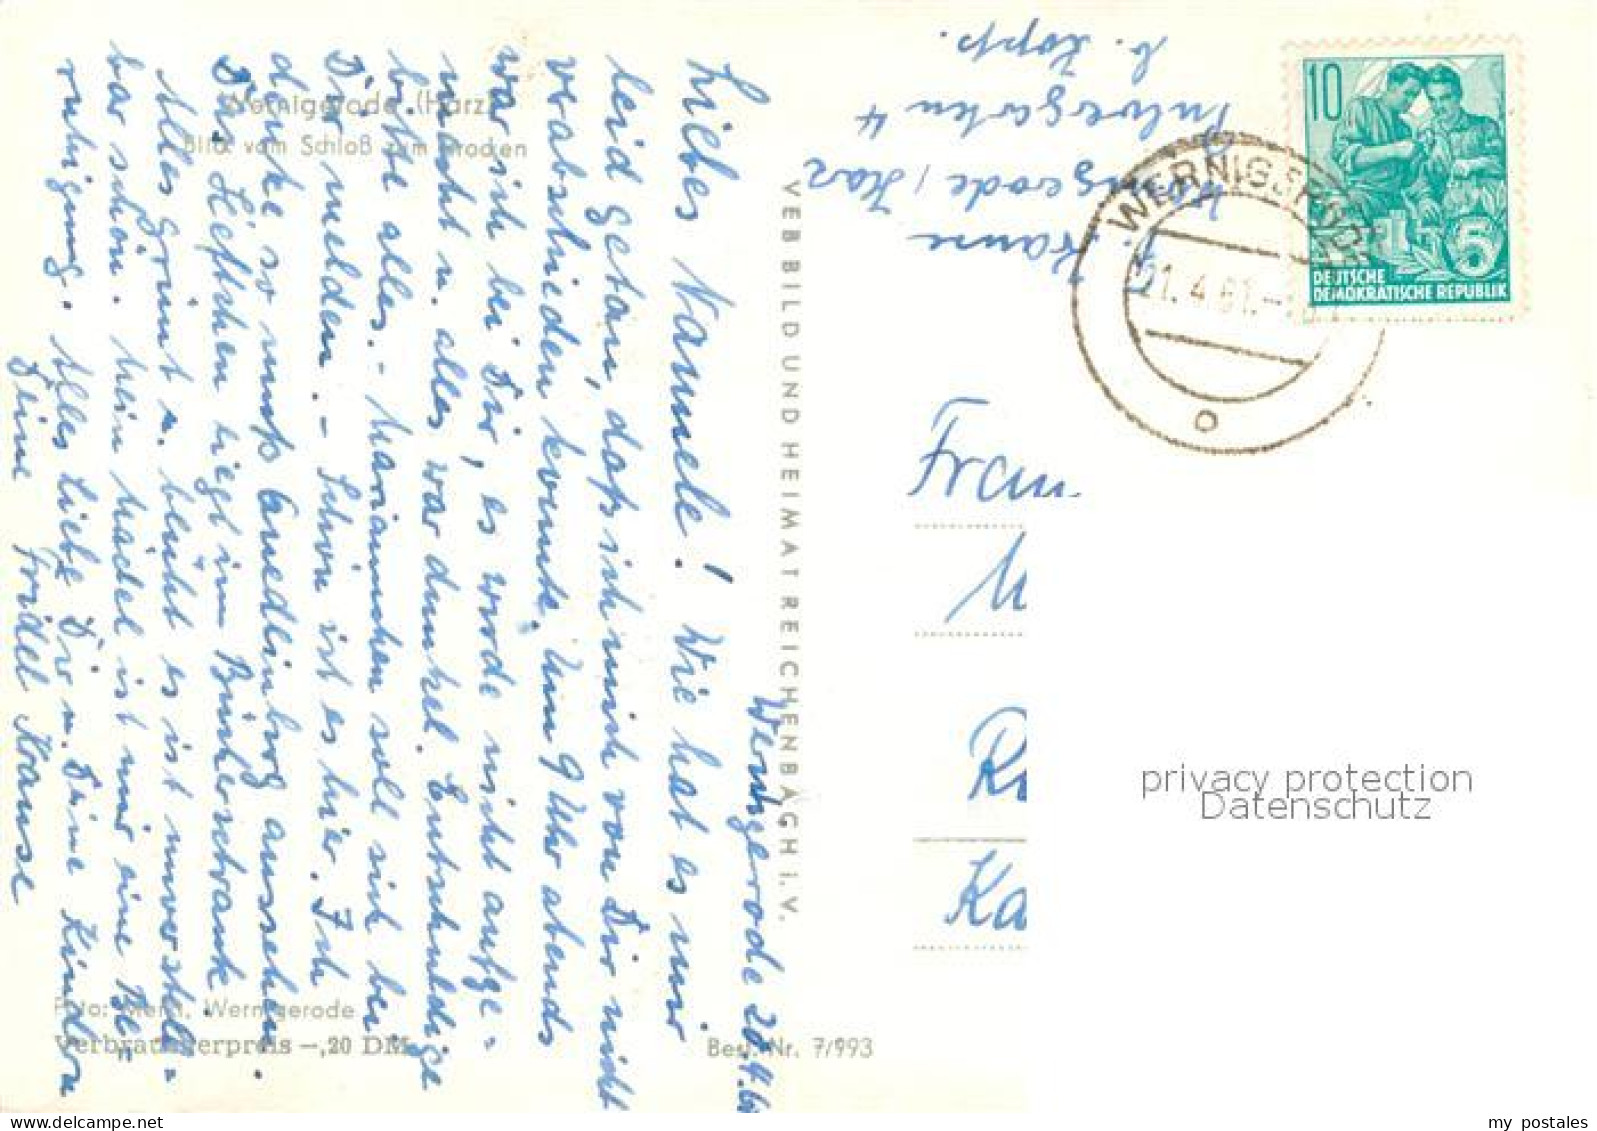 Wernigerode (Harz)
Blick vom Schloß zum Brocken
Wernigerode 20.4.61
Liebes Nannele! Wie hat es mir
leid getan, daß ich mich von Dir nicht
verabschieden konnte. Um 9 Uhr abends
war ich bei Dir, es wurde nicht aufge-
macht u. alles war dunkel. Entschuldige
bitte alles. - Mariannchen soll sich bei
Dir melden. - Schön ist es hier. Ich
denke so muß Quedlinburg aussehen.
Das Heftchen liegt im Bücherschrank
Alles grünt u. blüht es ist unvorstell-
bar schön. Mein Mädel ist mir eine Be-
ruhigung. Alles Liebe Dir u. Deine Kinder
Deine Fridel Krause
Foto: Wernigerode
Verbraucherpreis -,20 DM
Best.-Nr. 7/993
VEB BILD UND HEIMAT REICHENBACH I. V.
Krause
Wernigerode / Harz
4
b. Kopp.
10
5
DEUTSCHE
DEMOKRATISCHE REPUBLIK
WERNIGERODE
21. 4. 61.
o
Frau
M
Ka
privacy protection
Datenschutz
my postales